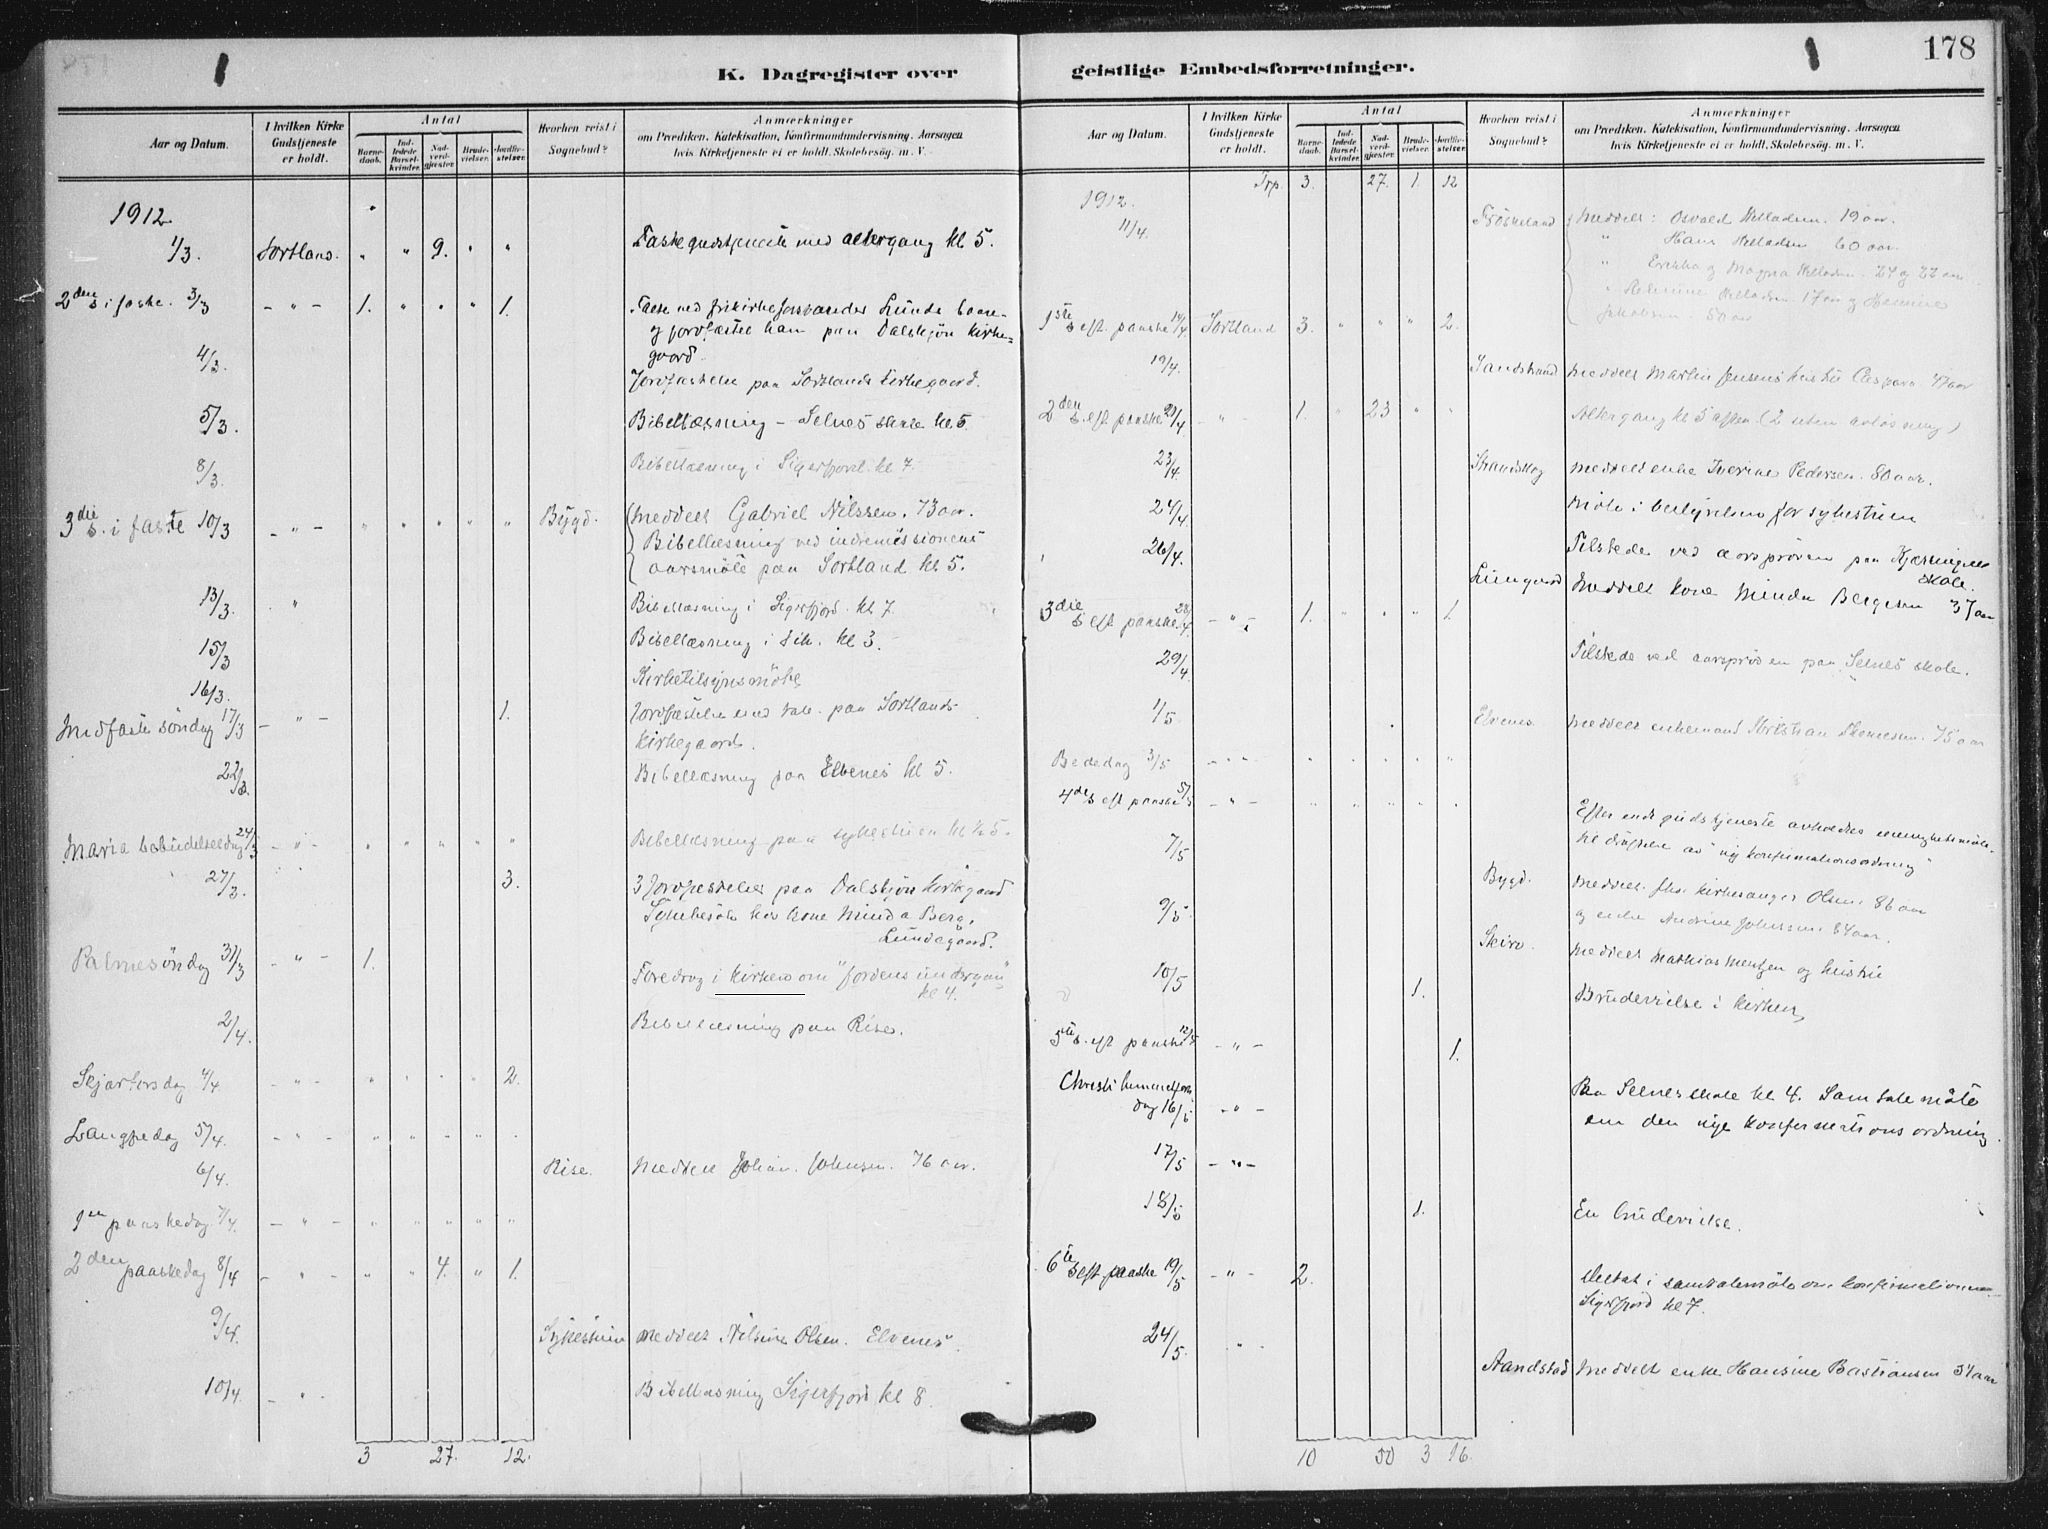 178
K. Dagregister over geistlige Embedsforretninger.
Aar og Datum.
I hvilken Kirke Gudstjeneste er holdt.
Antal
Barnedaab.
Indledede Barselkvinder.
Nadverdgjæster.
Brudevielser.
Jordfæstelser.
Hvorhen reist i Sognebud?
Anmærkninger
om Prædiken, Katekisation, Konfirmandundervisning, Aarsagen
hvis Kirketjeneste ei er holdt. Skolebesøg. m. V.
1912.
1/3. Sortland. " " 9. " " Fastegudstjeneste med altergang kl 5.
2den s. i faste. 3/3 - " - 1. " " " 1. Lunde
og jordfæstet ham paa Dalskjøn kirke-
gaard.
4/3. Jordfæstelse paa Sortlands kirkegaard.
5/3. Bibellæsning - Selnes skole kl. 5.
8/3. Bibellæsning i Sigerfjord kl 7.
3die s. i faste 10/3 - " - " " " " " Bygd. Meddelt Gabriel Nilssen. 73 aar.
Bibellæsning ved indremissionens
aarsmöte paa Sortland kl 5.
13/3. " Bibellæsning i Sigerfjord kl 7.
15/3 Bibellæsning i kl 3.
16/3. Kirketilsynsmöte
Midfastesöndag 17/3 - " - 1. Jordfæstelse med tale paa Sortlands
kirkegaard.
22/3. Bibellæsning paa Elvenes kl 5.
Maria bebudelsesdag 24/3 - " - " " " " " Bibellæsning paa sykestuen kl ½5.
27/3. 3. 3 Jordfestelser paa Dalskjøn kirkegaard
Sykebesök hos kone Minda Berg,
Lundegaard.
Palmesöndag 31/3 - " - 1. Foredrag i kirken om "Jordens undergang"
kl 4.
2/4. Bibellæsning paa Rise.
Skjærtorsdag 4/4. - " - " " " 2.
Langfredag 5/4. - " - " " " " "
6/4. Rise. Meddelt Johan Johnsen. 76 aar.
1ste paaskedag 7/4. - " - " " " " "
2den paaskedag 8/4 - " - " " 4. " 1.
9/4. Sykestuen Meddelt Nilsine Olsen. Elvenes.
10/4. - " Bibellæsning Sigerfjord kl 8.
3 27. 12.
Aar og Datum.
I hvilken Kirke Gudstjeneste er holdt.
Antal
Barnedaab.
Indledede Barselkvinder.
Nadverdgjæster.
Brudevielser.
Jordfæstelser.
Hvorhen reist i Sognebud?
Anmærkninger
om Prædiken, Katekisation, Konfirmandundervisning, Aarsagen
hvis Kirketjeneste ei er holdt. Skolebesøg. m. V.
Trp. 3. 27. 1. 12
1912.
11/4. Fröskeland Meddelt: Osvald Helladsen. 19 aar.
" Hans Helladsen 60 aar.
" Erikka og Magna Helladsen. 24 og 22 aar
" Helladsen 17 aar og
Jakobsen. 50 aar
1ste s. eft. paaske 14/4. Sortland 3. " " " 2.
19/4. Sandstrand Meddelt Martin Jensens hustru Caspara 47 aar
2den s. eft. paaske 21/4 " - 1. " 23 " " Altergang kl 5 aften. (2 uten avlösning)
23/4. Strandskog Meddelt enke Iverine Pedersen. 80 aar.
24/4. Möte i bestyrelsen for sykestuen
26/4. Tilstede ved aarspröven paa Kjærringnes
skole.
3die s. eft paaske 28/4. - " - 1. " " " 1. Lungaard Meddelt kone Minda Bergesen 37 aar
29/4. Tilstede ved aarspröven paa Selnes skole.
1/5 Elvenes. Meddelt enkemand Kristian Thomesen. 75 aar
Bededag 3/5 - " - " " " " "
4de s. eft paaske 5/5 - " - " " " " " Efter endt gudstjeneste avholdes menighetsmöte
til dröftelse av "ny konfirmationsordning"
7/5 Bygd. Meddelt fhv. kirkesanger Olsen. 86 aar
og enke Andrine Johnsen. 84 aar.
9/5 Skiro. Meddelt Mathias Mentzen og hustru
10/5 1. Brudevielse i kirken,
5te s. eft paaske 12/5 - " - 1.
Christi himmelfarts
dag 16/5 - " - Paa Selnes skole kl 4. Samtalemöte
om den nye konfirmationsordning.
17/5 - " -
18/5 1. En brudevielse.
6te s. eft paaske 19/5 - " - 2. Deltat i samtalemöte om konfirmationen
Sigerfjord kl 7.
24/5. " Aandstad Meddelt enke Hansine Bastiansen 54 aar
10 50 3 16.